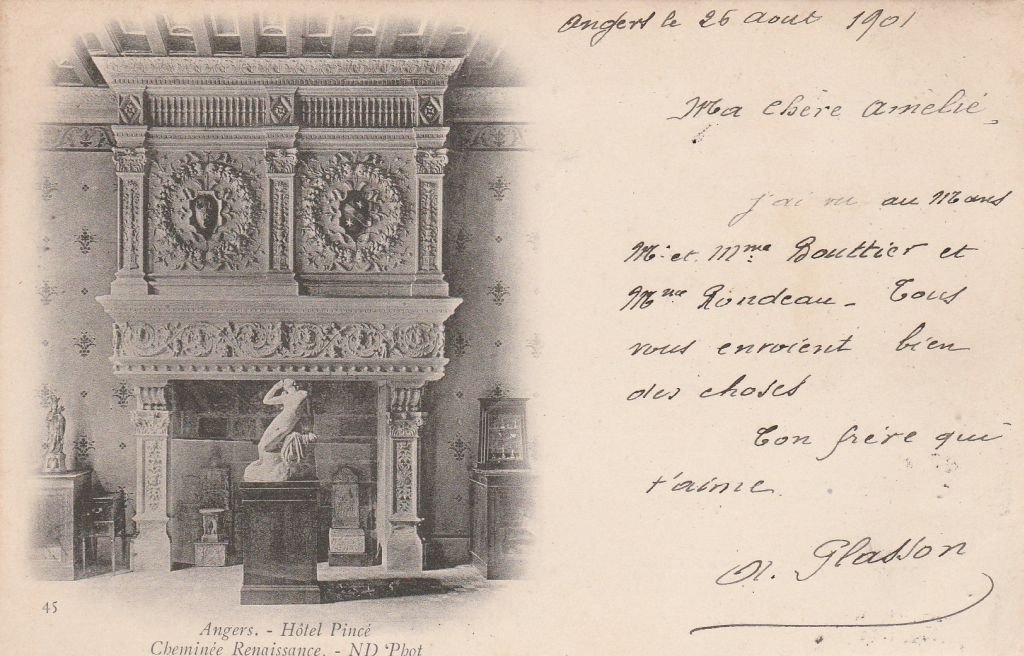 Angers le 26 aout 1901
Ma chère Amélie,
j'ai vu au Mans
M. et Mme Bouttier et
Mme Rondeau - Tous
vous envoient bien
des choses
Ton frère qui
t'aime
A. Glasson
45
Angers. - Hôtel Pincé
Cheminée Renaissance. - ND Phot